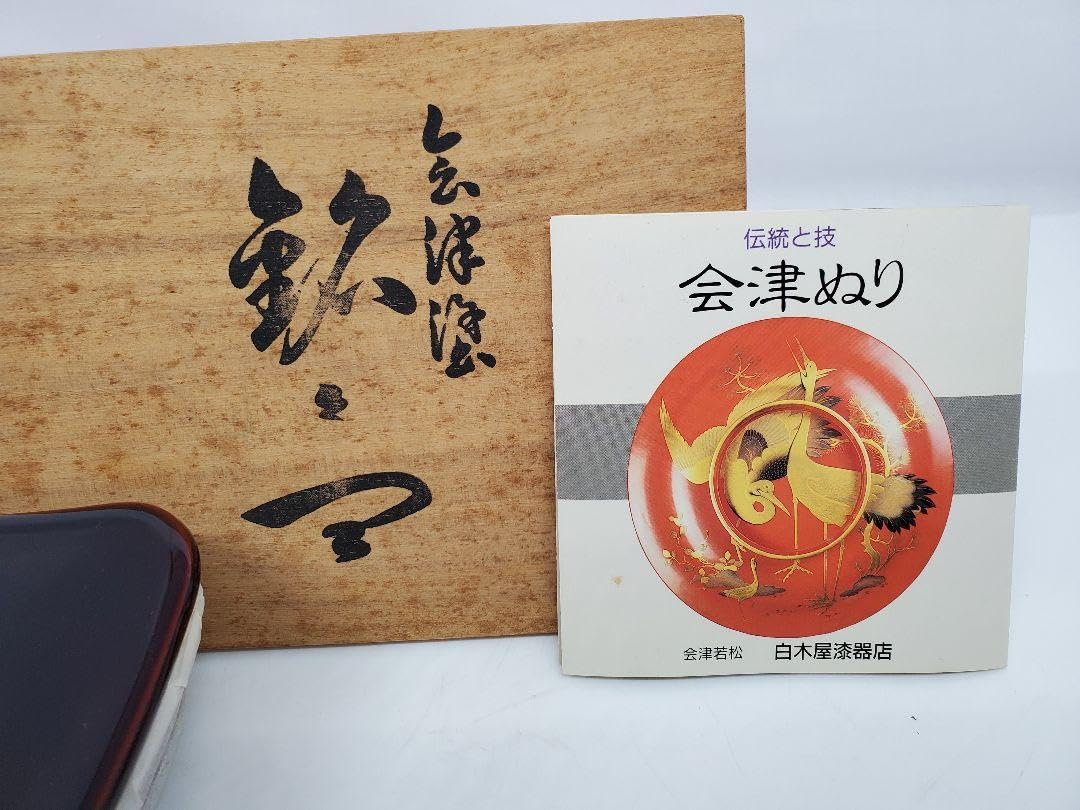 会津塗
銘々皿
伝統と技
会津ぬり
会津若松 白木屋漆器店